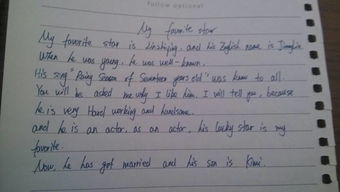 follow optional
My favorite star
My favorite star is Linzhiying, and his English name is Jimmylin.
When he was young, he was well-known.
His song "Rainy Season of Seventeen years old" was know to all.
You will be asked me why I like him. I will tell you, because
he is very Hard working and handsome.
and he is an actor, as an actor, his lucky star is my
favorite.
Now, he has got married and his son is Kimi.